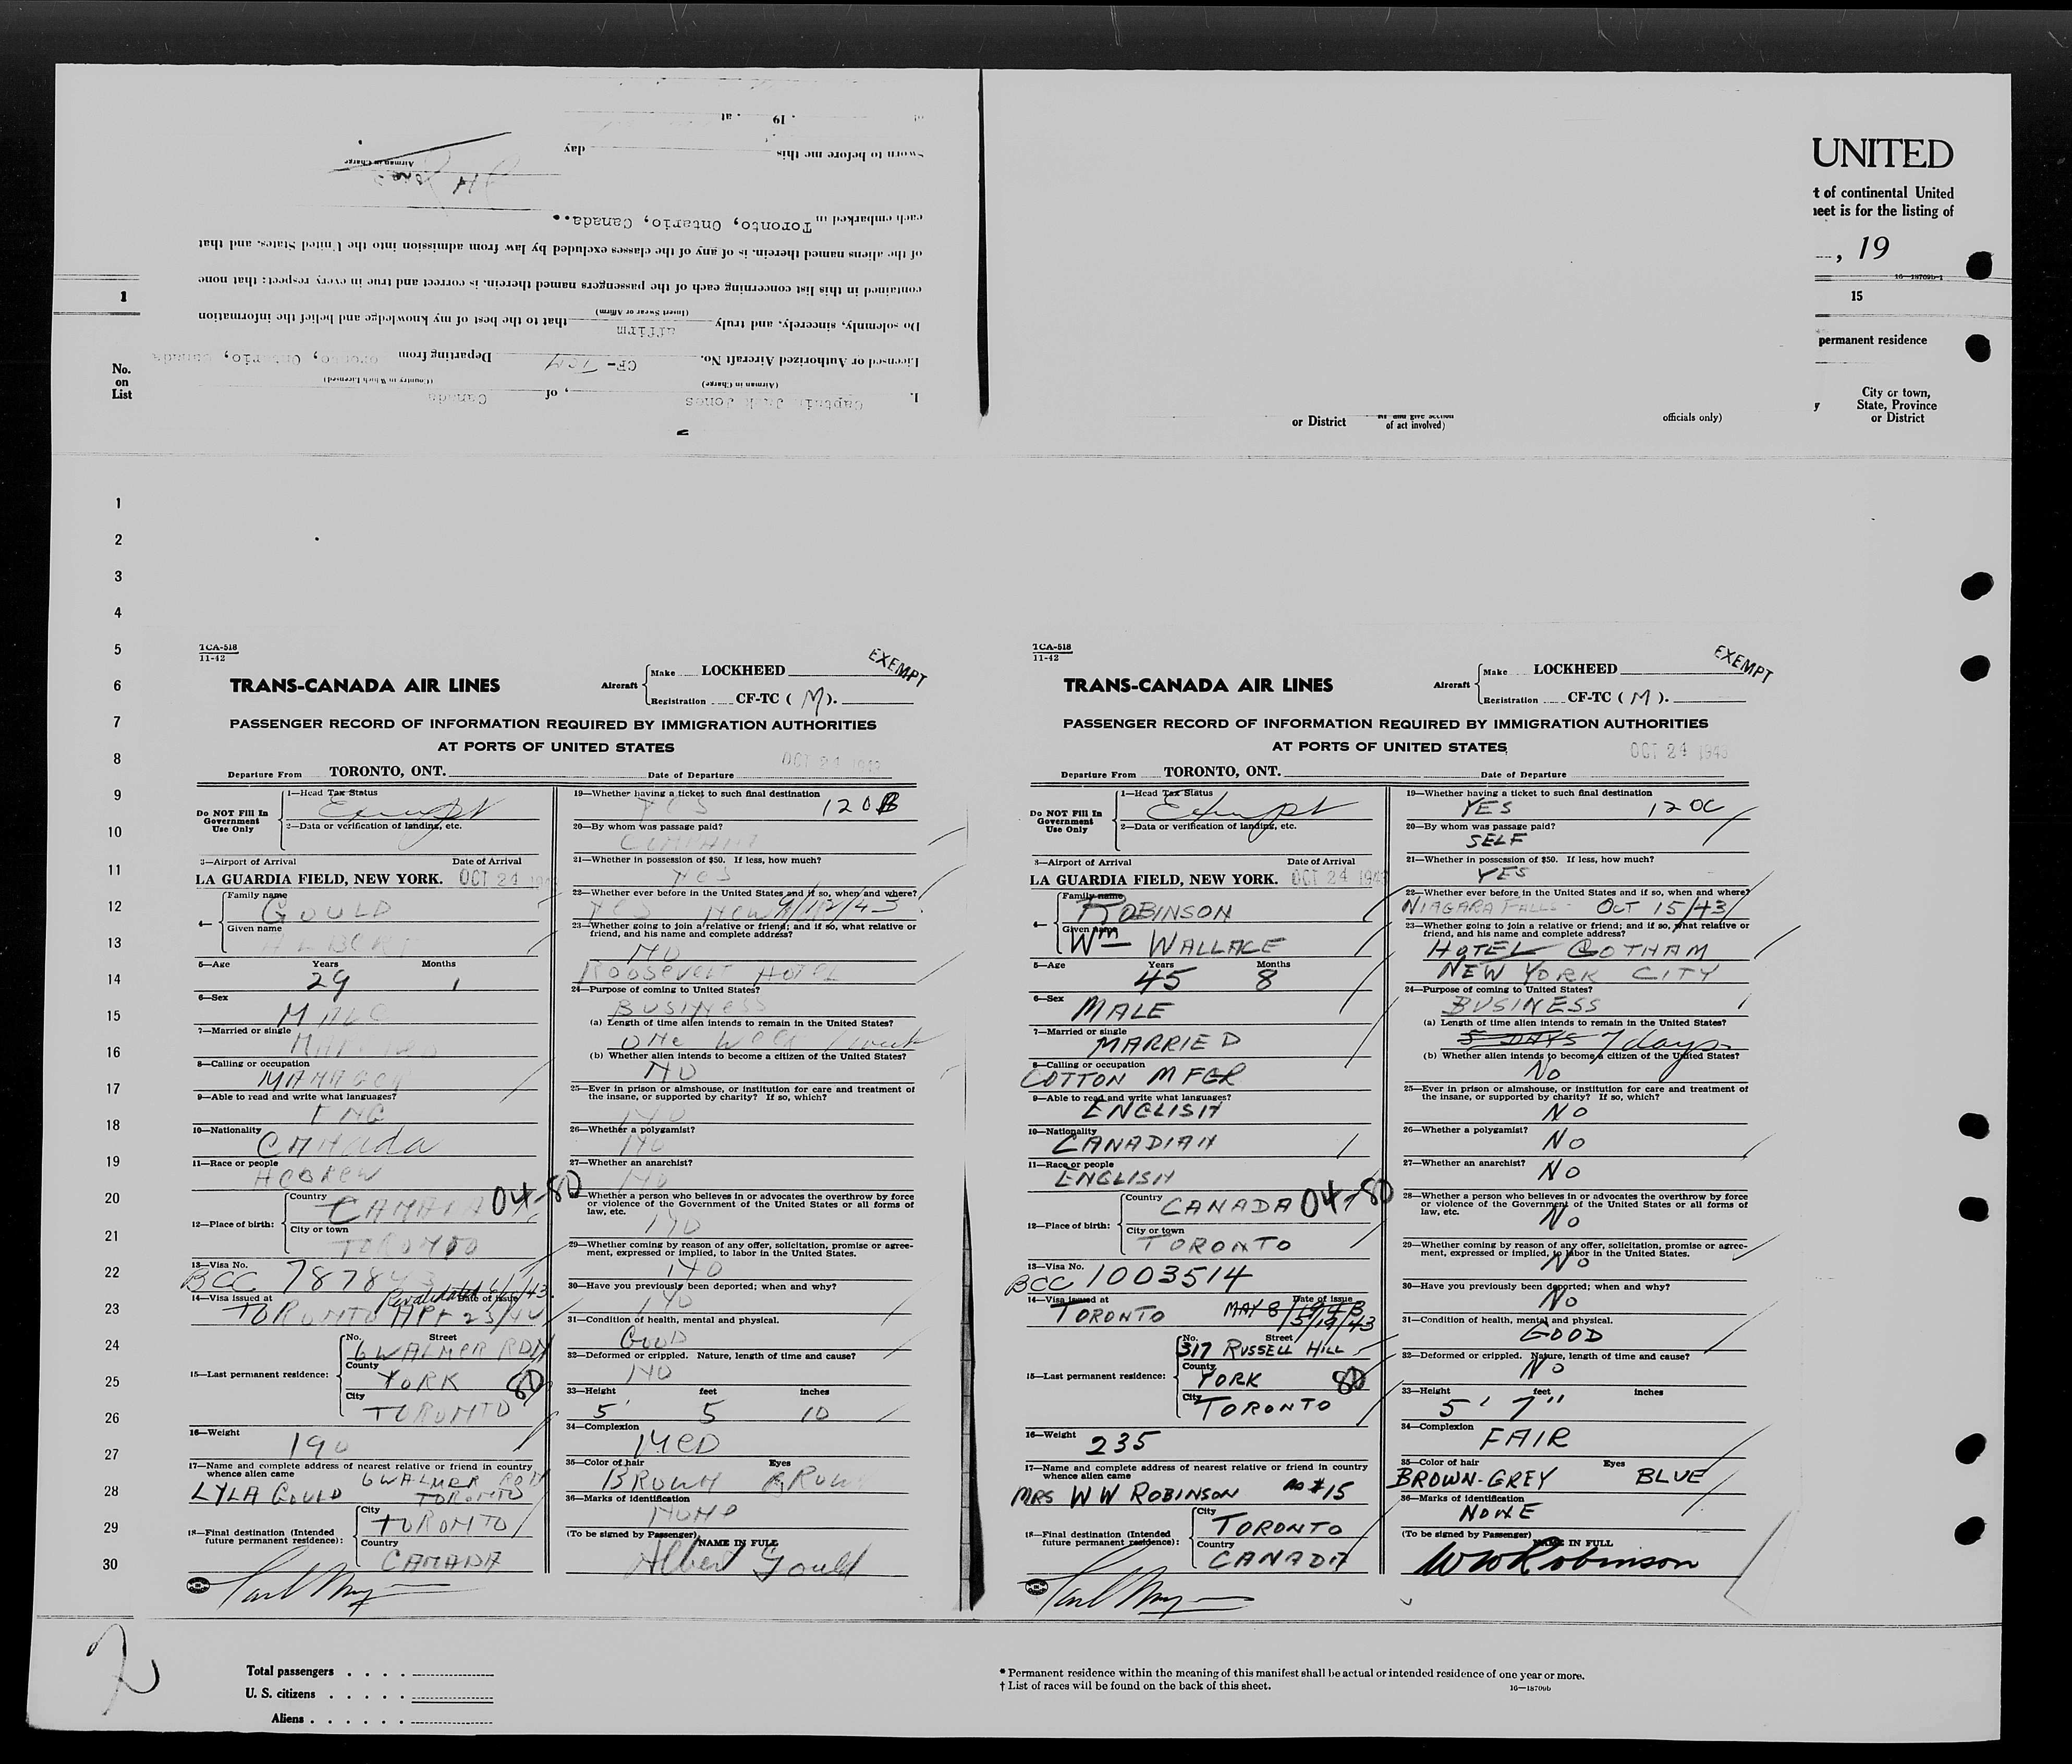 UNITED
t of continental United
heet is for the listing of
, 19
16—18709b-1
1
15
permanent residence
No.
on
List
City or town,
State, Province
or District
y
or District
of act involved)
officials only)
I, Captain Jack Jones, of Canada
(Airman in Charge)
(Country in Which Licensed)
Licensed or Authorized Aircraft No. CF-TCM Departing from Toronto, Ontario, Canada
Do solemnly, sincerely, and truly affirm that to the best of my knowledge and belief the information
(Insert Swear or Affirm)
contained in this list concerning each of the passengers named therein, is correct and true in every respect: that none
of the aliens named therein, is of any of the classes excluded by law from admission into the United States, and that
each embarked in Toronto, Ontario, Canada..
Airman in Charge
Sworn to before me this day
. 19 . at
1
2
3
4
5
6
7
8
9
10
11
12
13
14
15
16
17
18
19
20
21
22
23
24
25
26
27
28
29
30
TCA-518
11-42
TRANS-CANADA AIR LINES
Aircraft
Make LOCKHEED
Registration CF-TC ( M ).
EXEMPT
PASSENGER RECORD OF INFORMATION REQUIRED BY IMMIGRATION AUTHORITIES
AT PORTS OF UNITED STATES
OCT 24 1943
Departure From TORONTO, ONT. Date of Departure
Do NOT Fill In
Government
Use Only
1—Head Tax Status
Exempt
2—Data or verification of landing, etc.
3—Airport of Arrival Date of Arrival
LA GUARDIA FIELD, NEW YORK. OCT 24 194
4—
Family name
GOULD
Given name
ALBERT
5—Age Years Months
29 1
6—Sex
MALE
7—Married or single
MARRIED
8—Calling or occupation
MANAGER
9—Able to read and write what languages?
ENG
10—Nationality
CANADA
11—Race or people
HEBREW
12—Place of birth:
Country
CANADA 04-80
City or town
TORONTO
13—Visa No.
BCC 787843
14—Visa issued at Date of issue
Revalidated
TORONTO
15—Last permanent residence:
No. Street
6 WALMER RD
County
YORK 80
City
TORONTO
16—Weight
190
17—Name and complete address of nearest relative or friend in country
whence alien came 6 WALMER RD
LYLA GOULD TORONTO
18—Final destination (Intended
future permanent residence):
City
TORONTO
Country
CANADA
19—Whether having a ticket to such final destination
YES 120B
20—By whom was passage paid?
COMPANY
21—Whether in possession of $50. If less, how much?
YES
22—Whether ever before in the United States and if so, when and where?
YES NEW 9/12/43
23—Whether going to join a relative or friend; and if so, what relative or
friend, and his name and complete address?
NO
ROOSEVELT HOTEL
24—Purpose of coming to United States?
BUSINESS
(a) Length of time alien intends to remain in the United States?
ONE WEEK 1 week
(b) Whether alien intends to become a citizen of the United States?
NO
25—Ever in prison or almshouse, or institution for care and treatment of
the insane, or supported by charity? If so, which?
NO
26—Whether a polygamist?
NO
27—Whether an anarchist?
NO
28—Whether a person who believes in or advocates the overthrow by force
or violence of the Government of the United States or all forms of
law, etc.
NO
29—Whether coming by reason of any offer, solicitation, promise or agree-
ment, expressed or implied, to labor in the United States.
NO
30—Have you previously been deported; when and why?
NO
31—Condition of health, mental and physical.
GOOD
32—Deformed or crippled. Nature, length of time and cause?
NO
33—Height feet inches
5' 5 10
34—Complexion
MED
35—Color of hair Eyes
BROWN BROWN
36—Marks of identification
NONE
(To be signed by Passenger) NAME IN FULL
Albert Gould
TCA-518
11-42
TRANS-CANADA AIR LINES
Aircraft
Make LOCKHEED
Registration CF-TC ( M ).
EXEMPT
PASSENGER RECORD OF INFORMATION REQUIRED BY IMMIGRATION AUTHORITIES
AT PORTS OF UNITED STATES
OCT 24 1943
Departure From TORONTO, ONT. Date of Departure
Do NOT Fill In
Government
Use Only
1—Head Tax Status
Exempt
2—Data or verification of landing, etc.
3—Airport of Arrival Date of Arrival
LA GUARDIA FIELD, NEW YORK. OCT 24 1943
4—
Family name
ROBINSON
Given name
Wm WALLACE
5—Age Years Months
45 8
6—Sex
MALE
7—Married or single
MARRIED
8—Calling or occupation
COTTON MFGR
9—Able to read and write what languages?
ENGLISH
10—Nationality
CANADIAN
11—Race or people
ENGLISH
12—Place of birth:
Country
CANADA 04-80
City or town
TORONTO
13—Visa No.
BCC 1003514
14—Visa issued at Date of issue
TORONTO MAY 8/1943
5/19/43
15—Last permanent residence:
No. Street
317 RUSSELL HILL
County
YORK 80
City
TORONTO
16—Weight
235
17—Name and complete address of nearest relative or friend in country
whence alien came
MRS W W ROBINSON as #15
18—Final destination (Intended
future permanent residence):
City
TORONTO
Country
CANADA
19—Whether having a ticket to such final destination
YES 120C
20—By whom was passage paid?
SELF
21—Whether in possession of $50. If less, how much?
YES
22—Whether ever before in the United States and if so, when and where?
NIAGARA FALLS - OCT 15/43
23—Whether going to join a relative or friend; and if so, what relative or
friend, and his name and complete address?
HOTEL GOTHAM
NEW YORK CITY
24—Purpose of coming to United States?
BUSINESS
(a) Length of time alien intends to remain in the United States?
5 DAYS 7 days
(b) Whether alien intends to become a citizen of the United States?
NO
25—Ever in prison or almshouse, or institution for care and treatment of
the insane, or supported by charity? If so, which?
NO
26—Whether a polygamist?
NO
27—Whether an anarchist?
NO
28—Whether a person who believes in or advocates the overthrow by force
or violence of the Government of the United States or all forms of
law, etc.
NO
29—Whether coming by reason of any offer, solicitation, promise or agree-
ment, expressed or implied, to labor in the United States.
NO
30—Have you previously been deported; when and why?
NO
31—Condition of health, mental and physical.
GOOD
32—Deformed or crippled. Nature, length of time and cause?
NO
33—Height feet inches
5' 7"
34—Complexion
FAIR
35—Color of hair Eyes
BROWN-GREY BLUE
36—Marks of identification
NONE
(To be signed by Passenger) NAME IN FULL
W W Robinson
2
Total passengers . . . .
U. S. citizens . . . . .
Aliens . . . . . .
* Permanent residence within the meaning of this manifest shall be actual or intended residence of one year or more.
† List of races will be found on the back of this sheet.
16—18709b